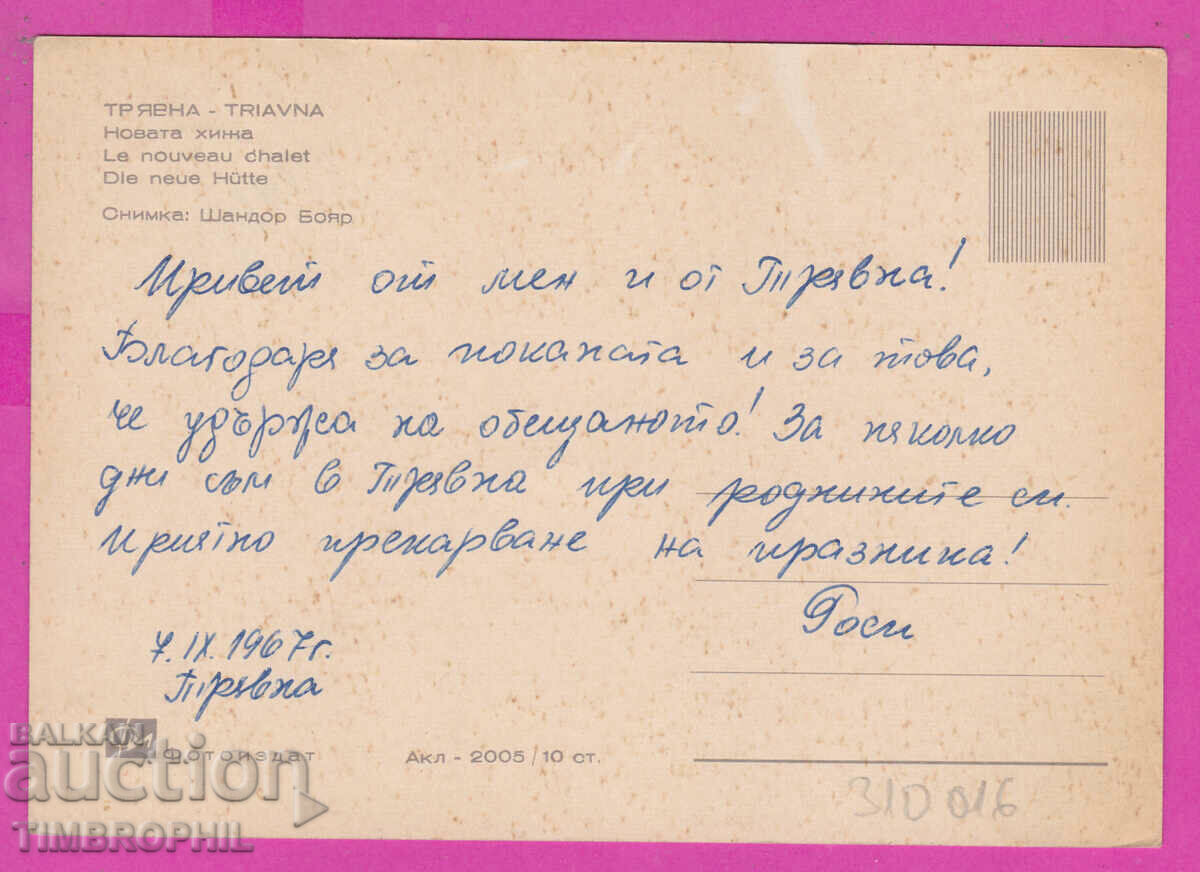 ТРЯВНА - TRIAVNA
Новата хижа
Le nouveau chalet
Die neue Hütte
Снимка: Шандор Бояр
Привет от мен и от Трявна!
Благодаря за поканата и за това,
че удържа на обещаното! За няколко
дни съм в Трявна при роднините си.
Приятно прекарване на празника!
Роси
7.IX.1967г.
Трявна
Фотоиздат
Акл - 2005/10 ст.
310016
BALKAN
auction
TIMBROPHIL